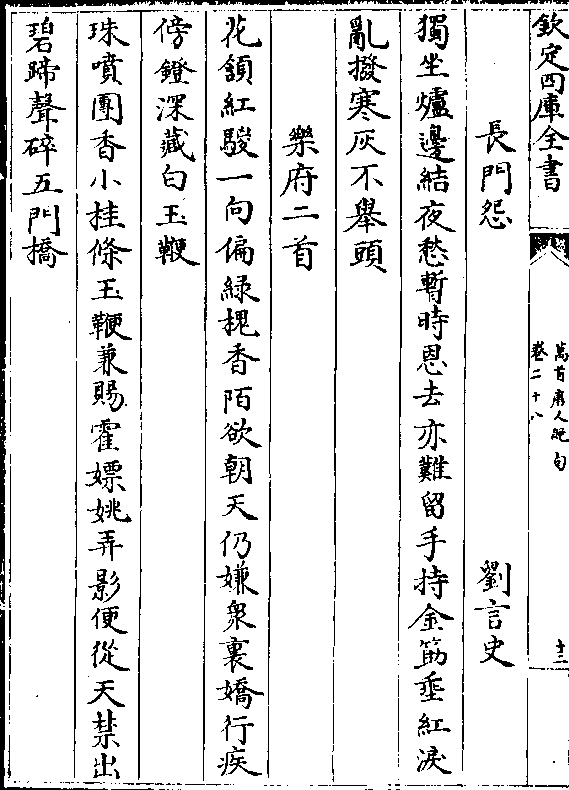 欽定四庫全書
萬首唐人絶句
卷二十八
十三
長門怨 劉言史
獨坐爐邊結夜愁暫時恩去亦難留手持金筯垂紅淚
亂撥寒灰不舉頭
樂府二首
花頷紅駿一向偏緑槐香陌欲朝天仍嫌衆裏嬌行疾
傍鐙深藏白玉鞭
珠噴團香小桂條玉鞭兼賜霍嫖姚弄影便從天禁出
碧蹄聲碎五門橋